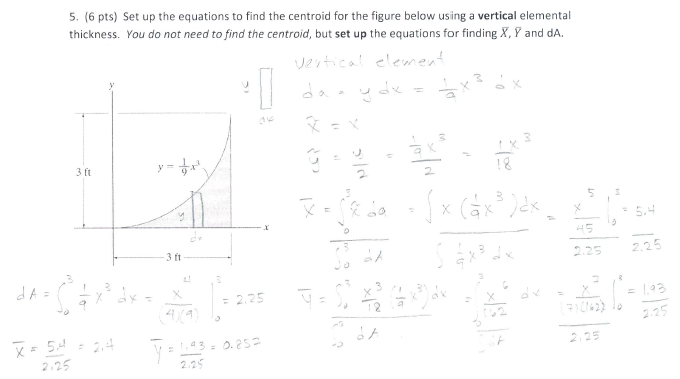 5. (6 pts) Set up the equations to find the centroid for the figure below using a vertical elemental
thickness. You do not need to find the centroid, but set up the equations for finding X̄, Ȳ and dA.
vertical element
y
dx
da = y dx = 1/9 x³ dx
x̃ = x
ỹ = y/2 = (1/9 x³)/2 = 1x³/18
y
3 ft
y = 1/9 x³
y
dx
x
3 ft
X̄ = ∫₀³ x̃ da / ∫₀³ dA = ∫ x (1/9 x³) dx / ∫ 1/9 x³ dx = (x⁵/45 |₀³) / 2.25 = 5.4 / 2.25
dA = ∫₀³ 1/9 x³ dx = x⁴/(4)(9) |₀³ = 2.25
Ȳ = ∫₀³ x³/18 (1/9 x³) dx / ∫₀³ dA = ∫₀³ x⁶/162 dx / ∫ dA = (x⁷/(7)(162) |₀³) / 2.25 = 1.93 / 2.25
X̄ = 5.4/2.25 = 2.4
Ȳ = 1.93/2.25 = 0.857